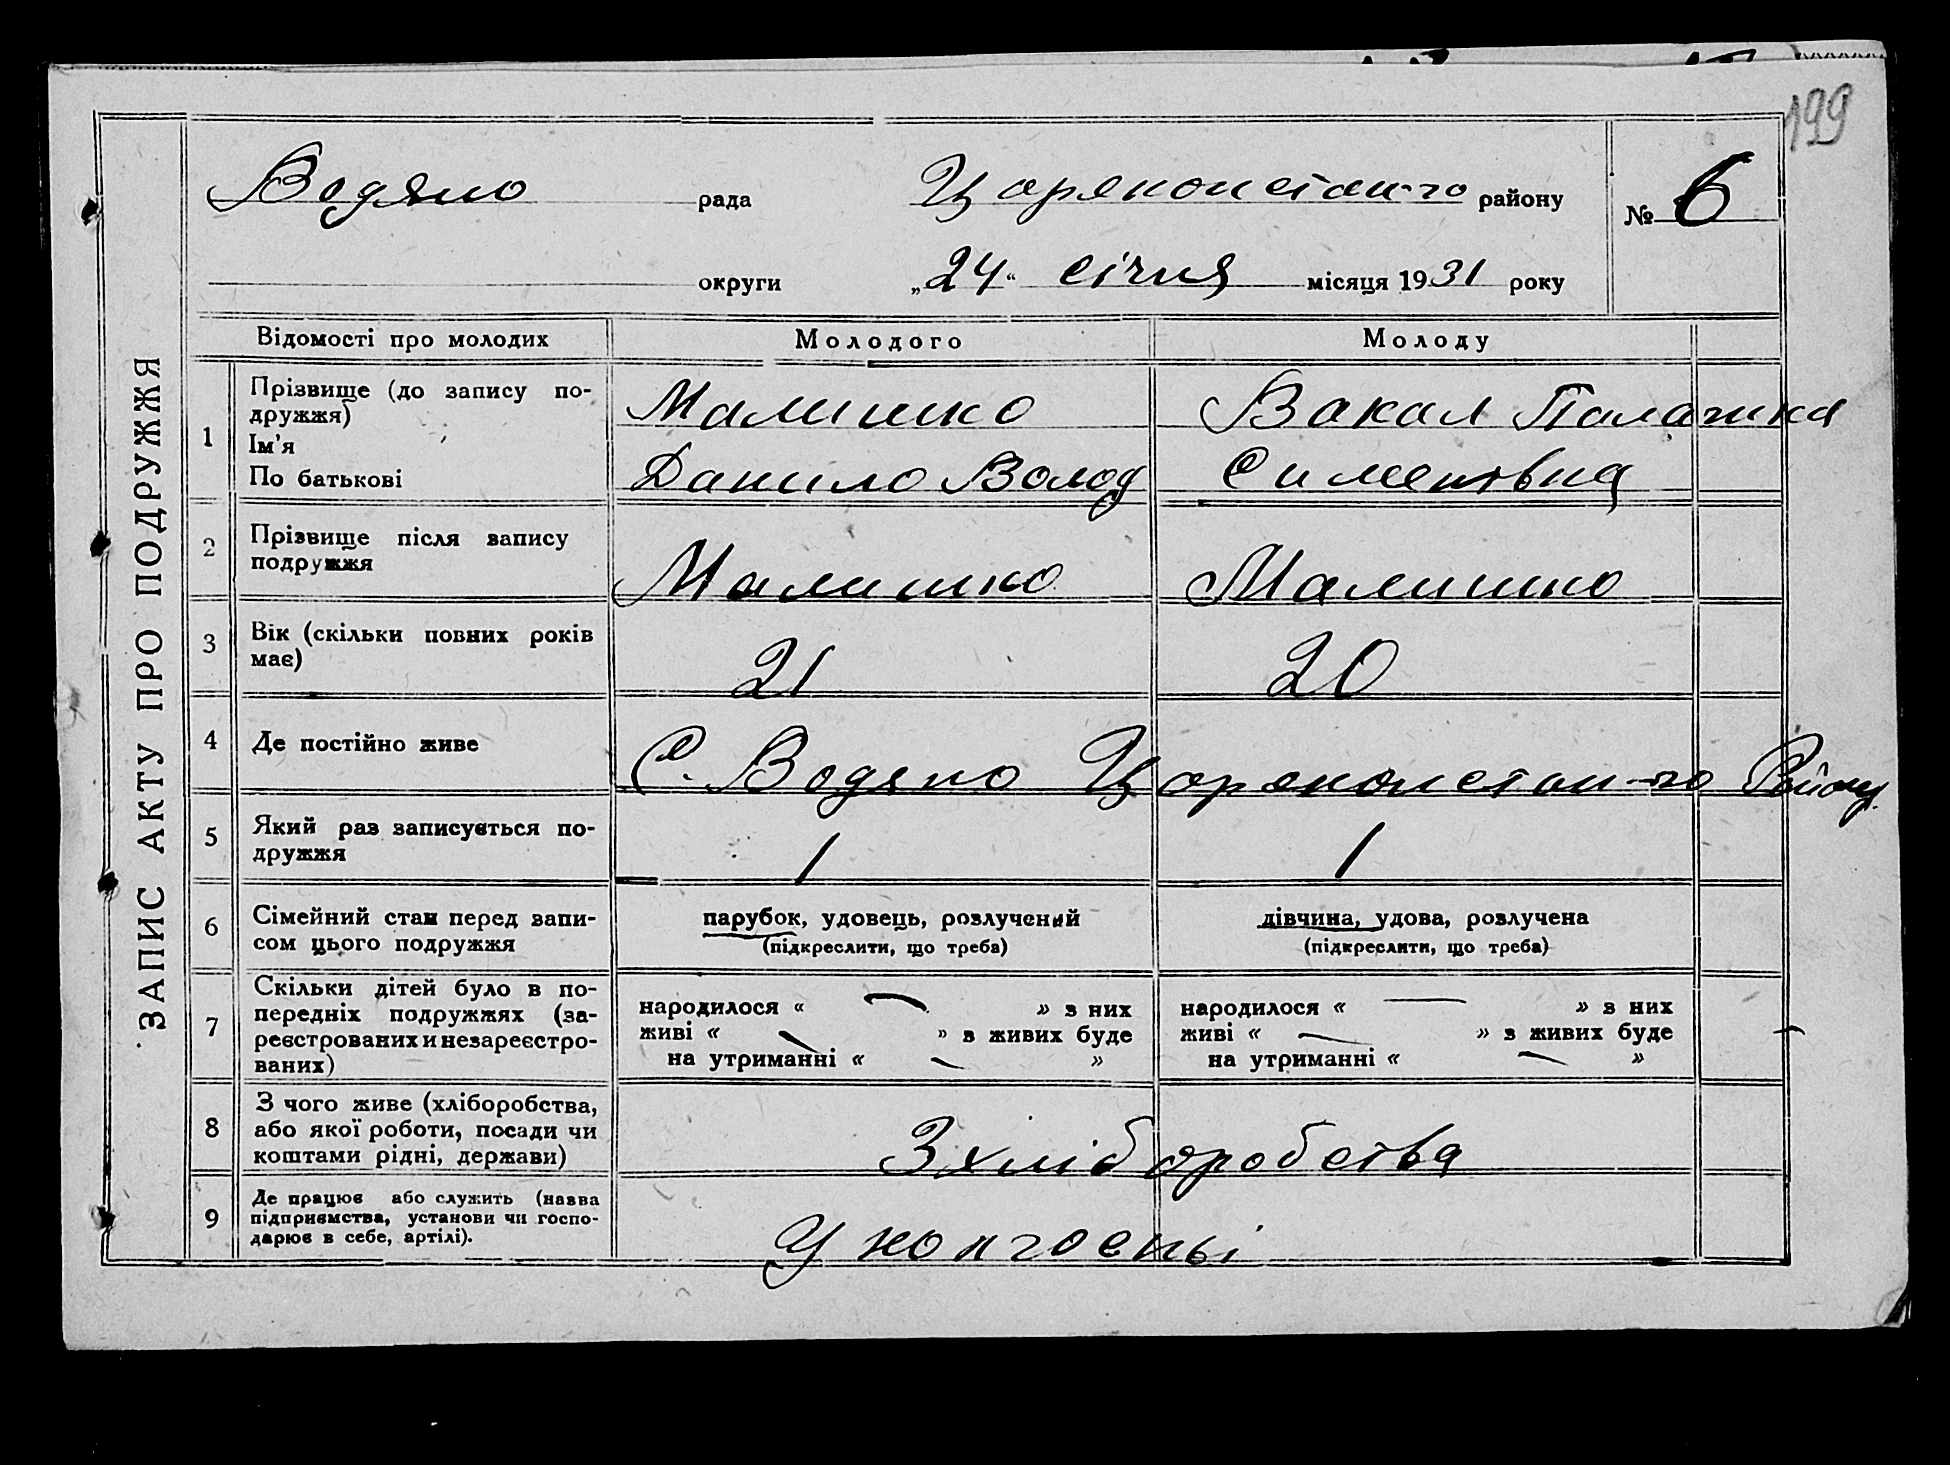 199
Водяно рада Царекопстан-го району № 6
округи „24“ січня місяця 1931 року
ЗАПИС АКТУ ПРО ПОДРУЖЖЯ
Відомості про молодих Молодого Молоду
1 Прізвище (до запису по-
дружжя)
Ім'я
По батькові
Малишко
Данило Волод
Вакал Палажка
Симентвна
2 Прізвище після запису
подружжя
Малишко Малишко
3 Вік (скільки повних років
має)
21 20
4 Де постійно живе С. Водяно Царекопстан-го Району
5 Який раз записується по-
дружжя
1 1
6 Сімейний стан перед запи-
сом цього подружжя
парубок, удовець, розлучений
(підкреслити, що треба)
дівчина, удова, розлучена
(підкреслити, що треба)
7 Скільки дітей було в по-
передніх подружжях (за-
реєстрованих и незареєстро-
ваних)
народилося « — » з них
живі « — » з живих буде
на утриманні « — »
народилося « — » з них
живі « — » з живих буде
на утриманні « — »
8 З чого живе (хліборобства,
або якої роботи, посади чи
коштами рідні, держави)
З хліборобства
9 Де працює або служить (назва
підприємства, установи чи госпо-
дарює в себе, артілі).
У колгоспі